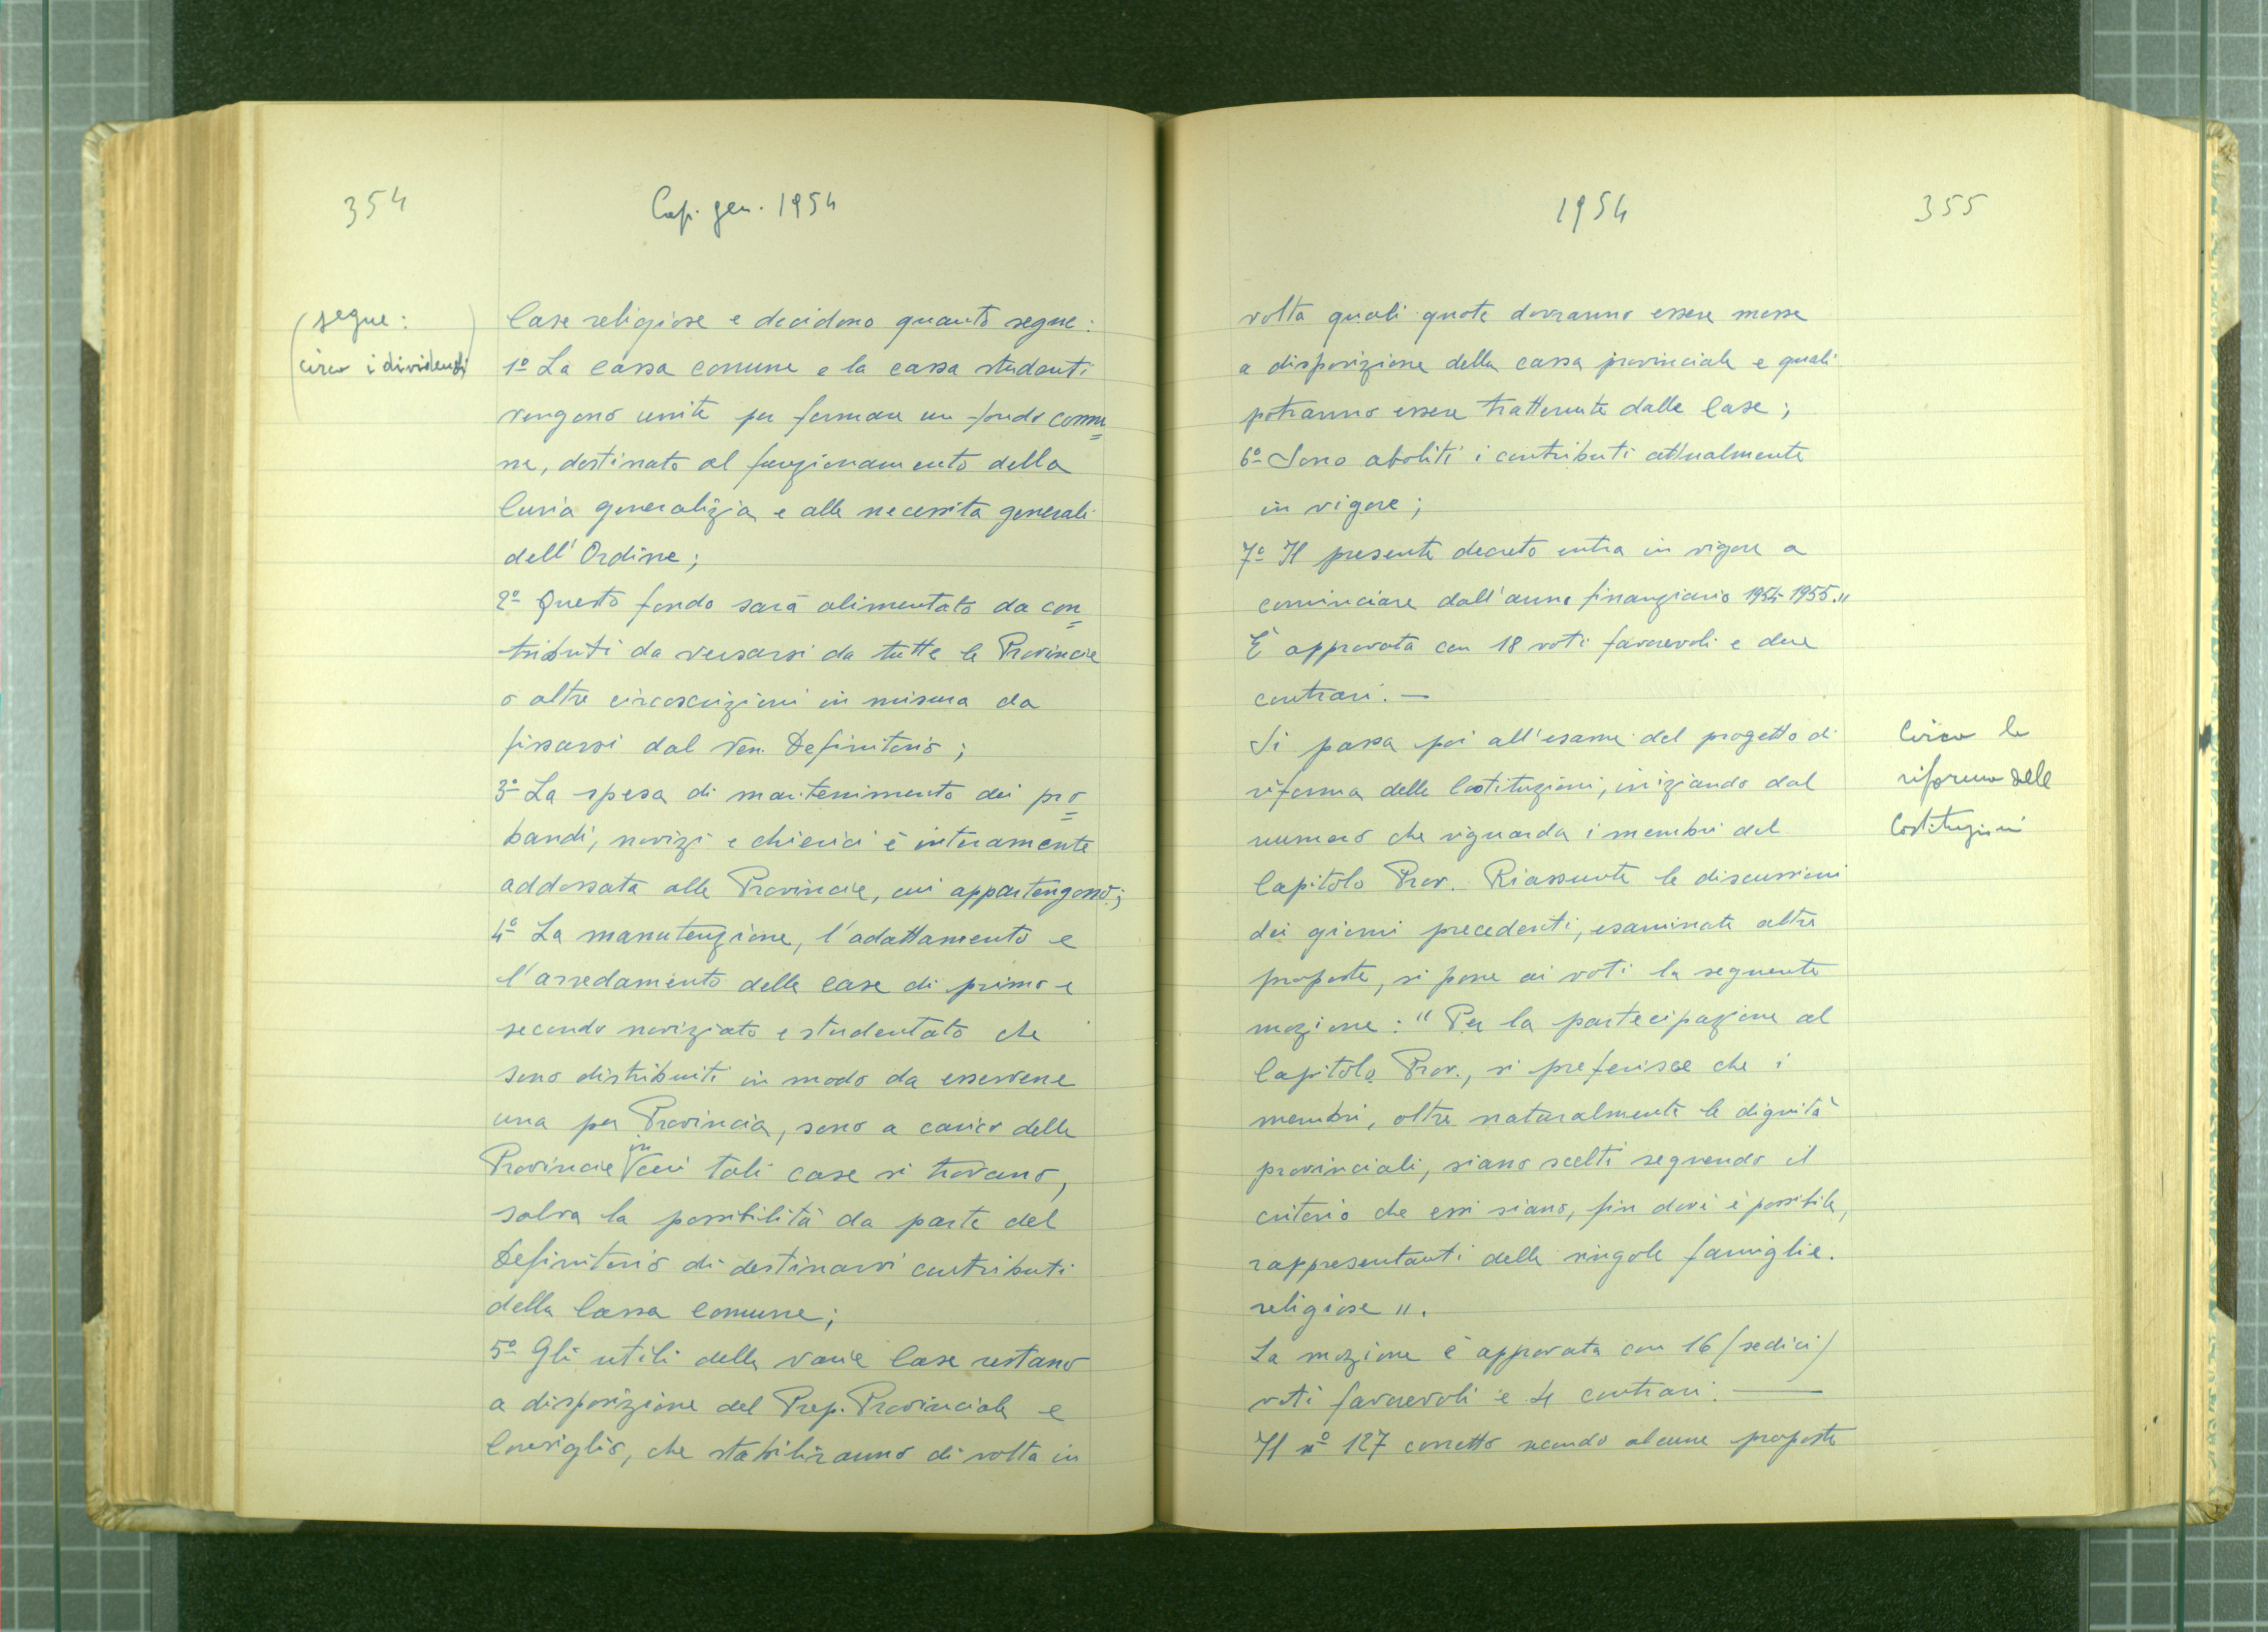 354
Cap. gen. 1954
(segue:
circa i dividendi)
Case religiose e decidono quanto segue:
1º La cassa comune e la cassa studenti
vengono unite per formare un fondo comu=
ne, destinato al funzionamento della
Curia generalizia e alle necessità generali
dell'Ordine;
2º Questo fondo sarà alimentato da con=
tributi da versarsi da tutte le Provincie
o altre circoscrizioni in misura da
fissarsi dal Ven. Definitorio;
3º La spesa di mantenimento dei pro=
bandi, novizi e chierici è interamente
addossata alle Provincie, cui appartengono;
4º La manutenzione, l'adattamento e
l'arredamento delle case di primo e
secondo noviziato e studentato che
sono distribuiti in modo da esservene
una per Provincia, sono a carico delle
Provincie in cui tali case si trovano,
salva la possibilità da parte del
Definitorio di destinarvi contributi
della Cassa Comune;
5º Gli utili delle varie Case restano
a disposizione del Prep. Provinciale e
Consiglio, che stabiliranno di volta in
1954
355
volta quali quote dovranno essere messe
a disposizione della cassa provinciale e quali
potranno essere trattenute dalle Case;
6º Sono aboliti i contributi attualmente
in vigore;
7º Il presente decreto entra in vigore a
cominciare dall'anno finanziario 1954-1955."
È approvata con 18 voti favorevoli e due
contrari. —
Si passa poi all'esame del progetto di
riforma delle Costituzioni, iniziando dal
numero che riguarda i membri del
Capitolo Prov. Riassunte le discussioni
dei giorni precedenti, esaminate altre
proposte, si pone ai voti la seguente
mozione: "Per la partecipazione al
Capitolo Prov., si preferisce che i
membri, oltre naturalmente le dignità
provinciali, siano scelti seguendo il
criterio che essi siano, fin dove è possibile,
rappresentanti delle singole famiglie.
religiose".
La mozione è approvata con 16 (sedici)
voti favorevoli e 4 contrari. —
Il nº 127 corretto secondo alcune proposte
Circa la
riforma delle
Costituzioni